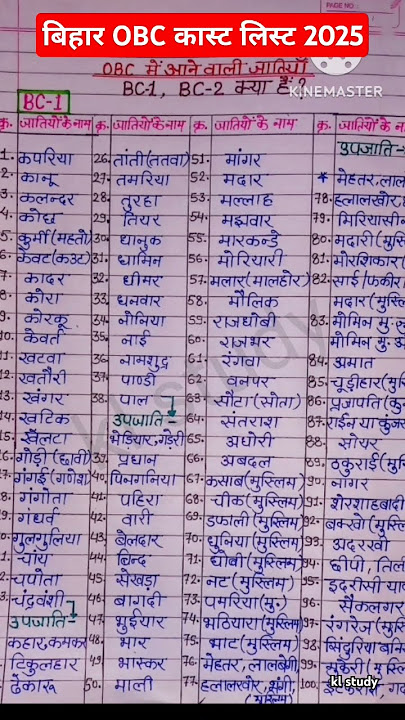 PAGE NO :
बिहार OBC कास्ट लिस्ट 2025
OBC में आने वाली जातियाँ
BC-1, BC-2 क्या हैं ?
KINEMASTER
BC-1
क्र. जातियों के नाम क्र. जातियों के नाम क्र. जातियों के नाम क्र. जातियों के
1. कपरिया
2. कानू
3. कलन्दर
4. कोछ
5. कुर्मी (महतो)
6. केवट (कउट)
7. कादर
8. कोरा
9. कोरकू
10. केवर्त
11. खटवा
12. खतौरी
13. खंगर
14. खटिक
15. खेलटा
16. गोड़ी (छावी)
17. गंगई (गणेश)
18. गंगोता
19. गंधर्व
20. गुलगुलिया
21. चांय
22. चपोता
23. चंद्रवंशी
उपजाति-
कहार, कमकर
टिकुलहार
ढेकारू
26. तांती (ततवा)
27. तमरिया
28. तुरहा
29. तियर
30. धानुक
31. धामिन
32. धीमर
33. धनवार
34. नोनिया
35. नाई
36. नामशुद्र
37. पाण्डी
38. पाल
उपजाति
भेड़ियार, गड़ेरी
39. प्रधान
40. पिनगनिया
41. पहिरा
42. वारी
43. बेलदार
44. बिन्द
45. सेखड़ा
46. बागदी
47. भुईयार
48. भार
49. भास्कर
50. माली
51. मांगर
52. मदार
53. मल्लाह
54. मझवार
55. मारकन्डे
56. मोरियारी
57. मलार (मालहोर)
58. मौलिक
59. राजधोबी
60. राजभर
61. रंगवा
62. वनपर
63. सौटा (सोता)
64. संतराश
65. अघोरी
66. अबदल
67. कसाब (मुस्लिम)
68. चीक (मुस्लिम)
69. डफाली (मुस्लिम)
70. धुनिया (मुस्लिम)
71. धोबी (मुस्लिम)
72. नट (मुस्लिम)
73. पमरिया (मु.)
74. भठियारा (मुस्लिम)
75. भाट (मुस्लिम)
76. मेहतर, लालबेगी
77. हलालखोर, भंगी,
(मुस्लिम)
उपजाति-
* मेहतर, लाल
78. हलालखोर,
79. मिरियासीन
80. मदारी (मुस्लि
81. मोरशिकार (
82. साई/फकीर/
मदार (मुस्लि
83. मोमिन मु.
मोमिन मु.
84. अमात
85. चूड़ीहार (मुस्लि
86. प्रजापति (कु
87. राईन या कुंज
88. सोयर
89. ठकुराई (मुस्लि
90. नागर
91. शेरशाहबादी
92. बक्खो (मुस्लि
93. अदरखी
94. छीपी, तिली
95. इदरीसी या
96. सैकलगर
97. रंगरेज (मुस्लि
98. सिंदुरिया बनि
99. मुकेरी (मुस्लि
100.
kl study
kl study